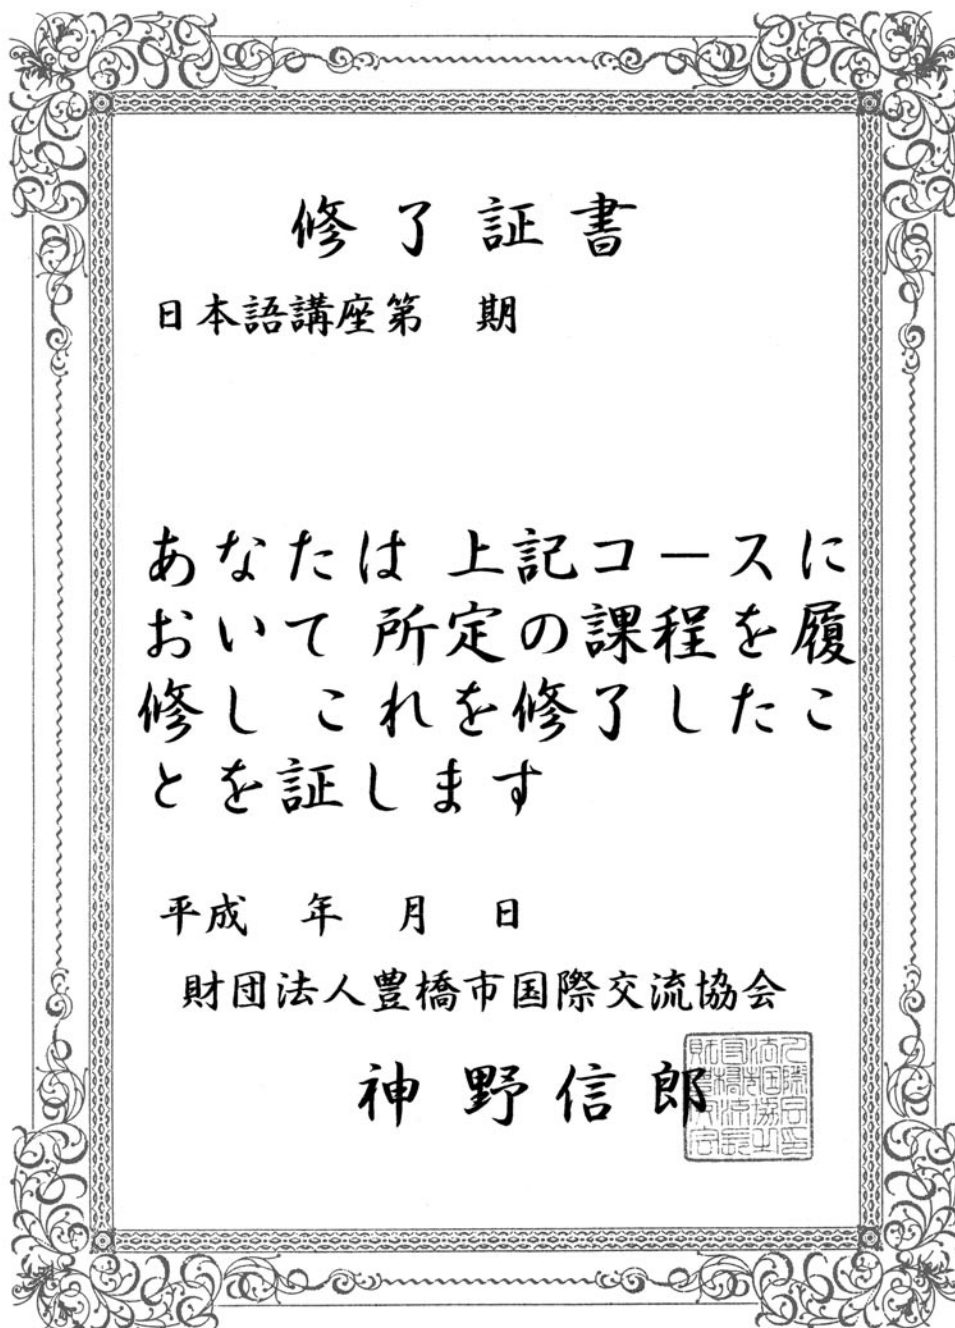 修了証書
日本語講座第　期
あなたは 上記コースに
おいて 所定の課程を履
修し これを修了したこ
とを証します
平成　年　月　日
財団法人豊橋市国際交流協会
神野信郎